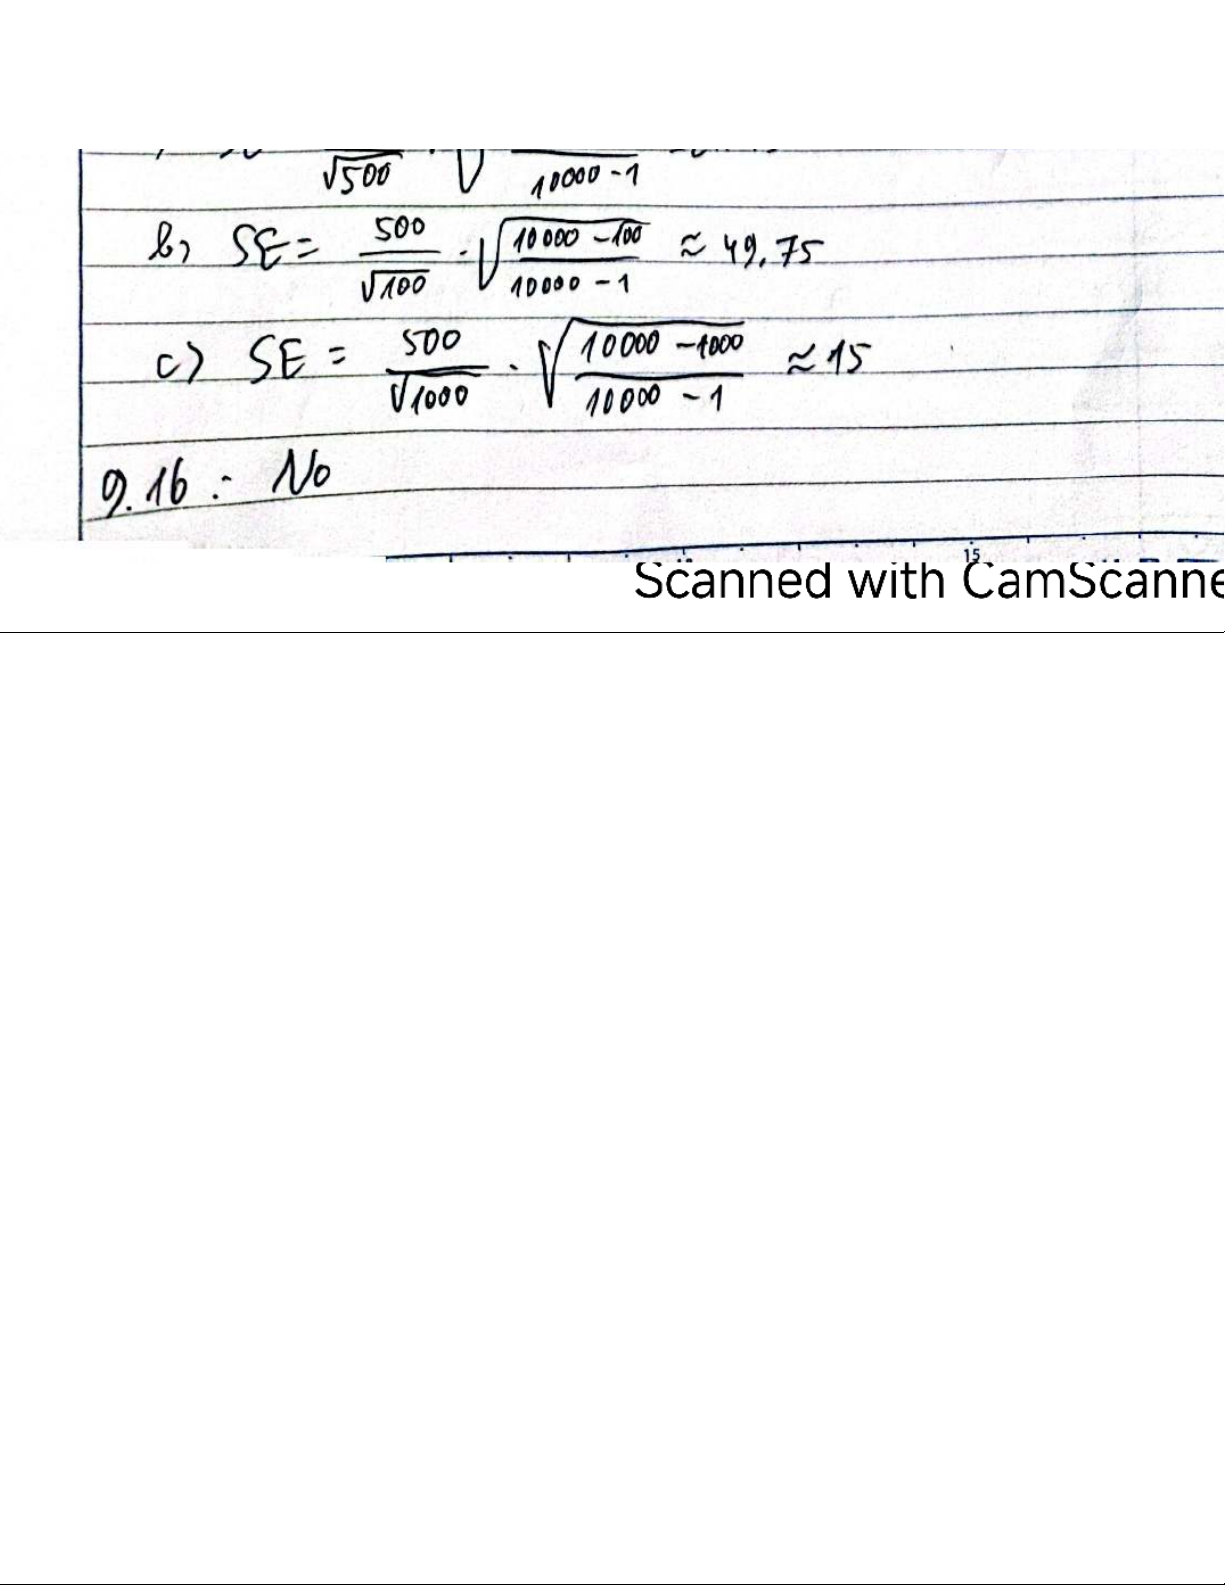 √500 · √ 10000 - 1
b) SE = 500/√100 · √(10000 - 100)/(10000 - 1) ≈ 49,75
c) SE = 500/√1000 · √(10000 - 1000)/(10000 - 1) ≈ 15
9.16 : No
15
Scanned with CamScanne